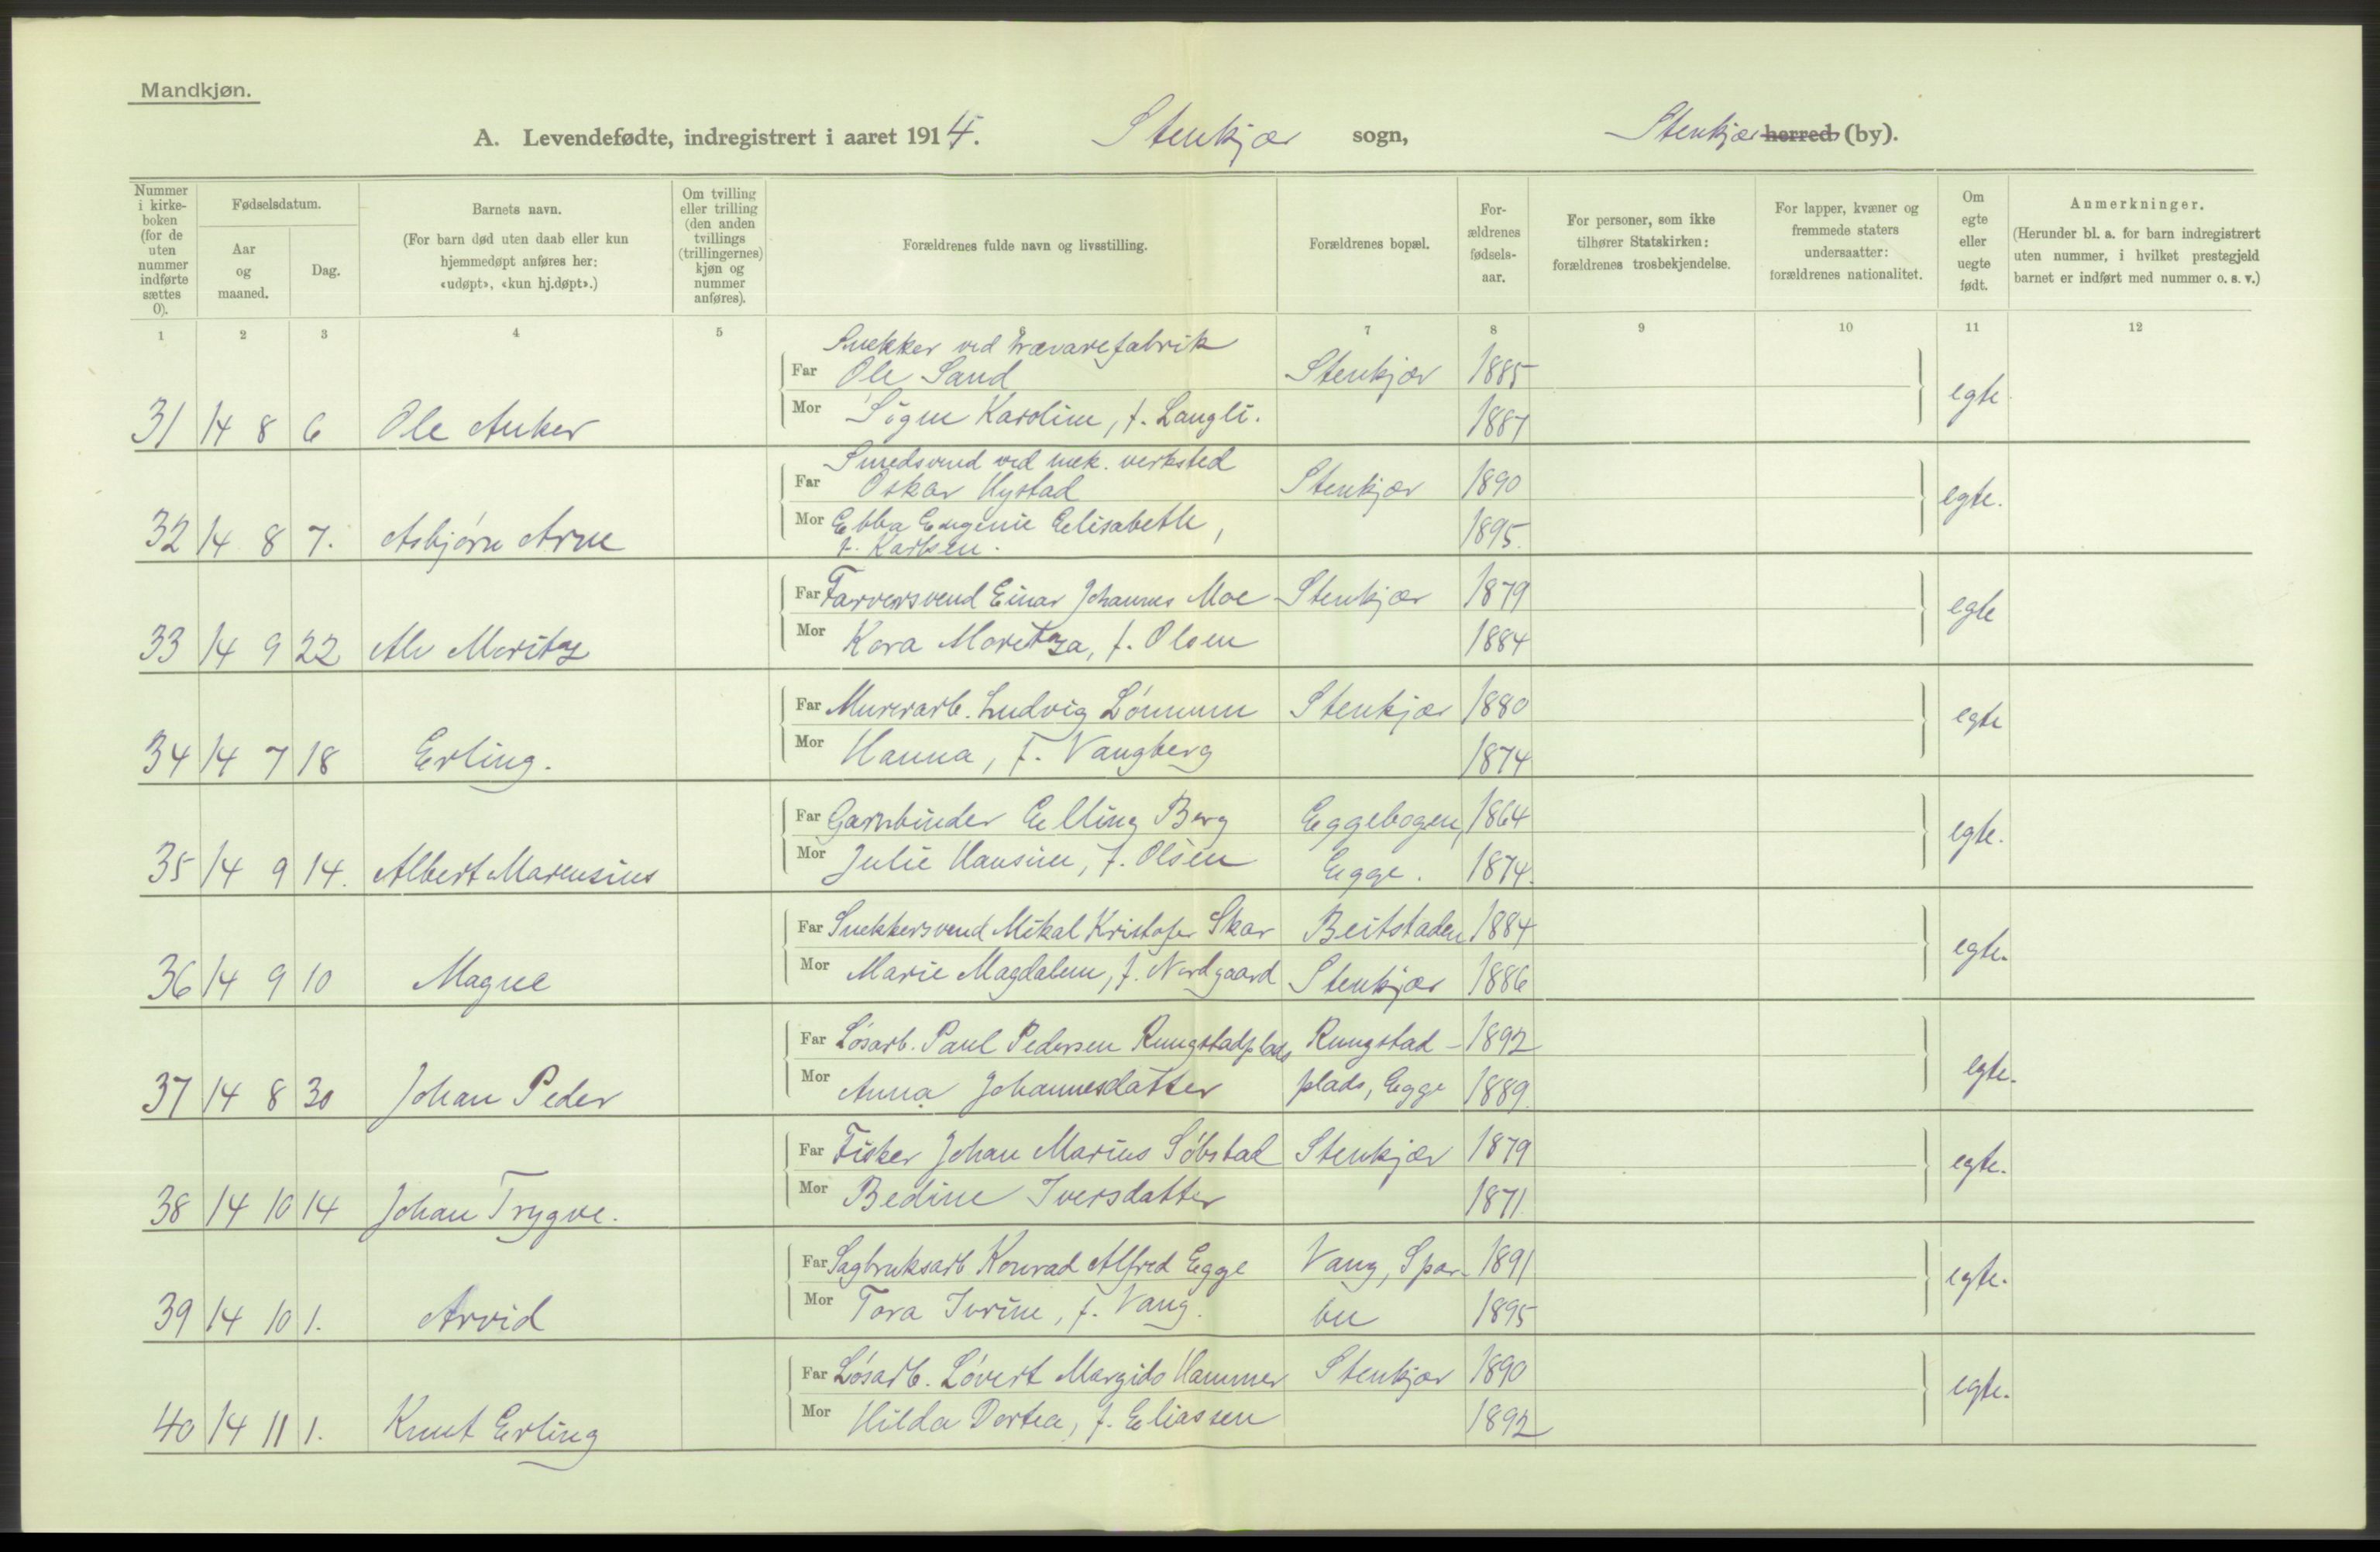 Mandkjøn.
A. Levendefødte, indregistrert i aaret 1914. Stenkjær sogn, Stenkjær herred (by).
Nummer i kirke-boken (for de uten nummer indførte sættes 0).
Fødselsdatum.
Aar og maaned.
Dag.
Barnets navn.
(For barn død uten daab eller kun hjemmedøpt anføres her: «udøpt», «kun hj.døpt».)
Om tvilling eller trilling (den anden tvillings (trillingernes) kjøn og nummer anføres).
Forældrenes fulde navn og livsstilling.
Forældrenes bopæl.
For-ældrenes fødsels-aar.
For personer, som ikke tilhører Statskirken: forældrenes trosbekjendelse.
For lapper, kvæner og fremmede staters undersaatter: forældrenes nationalitet.
Om egte eller uegte født.
Anmerkninger.
(Herunder bl. a. for barn indregistrert uten nummer, i hvilket prestegjeld barnet er indført med nummer o. s. v.)
1 2 3 4 5 7 8 9 10 11 12
Snekker ved trævarefabrik
Far Ole Sand Stenkjær 1885
Mor Signe Karoline, f. Langli. 1887
31 14 8 6 Ole Anker egte
Smedsvend ved mek. verksted
Far Oskar Hystad Stenkjær 1890
Mor Ebba Eugenie Elisabeth, 1895.
f. Karlsen.
32 14 8 7. Asbjørn Arne egte.
Far Farversvend Einar Johannes Moe Stenkjær 1879
Mor Kara Moretza, f. Olsen 1884
33 14 9 22 Alv Moritz egte
Far Murerarb. Ludvig Lønnum Stenkjær 1880
Mor Hanna, f. Vangberg 1874
34 14 7 18 Erling. egte
Far Garnbinder Elling Berg Eggebogen, 1864
Mor Julie Hansine, f. Olsen Egge. 1874.
35 14 9 14. Albert Marensius egte.
Far Snekkersvend Mikal Kristofer Skar Beitstaden 1884
Mor Marie Magdalene, f. Nordgaard Stenkjær 1886
36 14 9 10 Magne egte.
Far Løsarb. Paul Pedersen Rungstadplads Rungstad- 1892
Mor Anna Johannesdatter plads, Egge 1889.
37 14 8 30 Johan Peder egte.
Far Fisker Johan Marius Søbstad Stenkjær 1879
Mor Bedine Iversdatter 1871
38 14 10 14 Johan Trygve. egte.
Far Sagbruksarb Konrad Alfred Egge Vang, Spar- 1891
Mor Tora Ivrine, f. Vang. bu 1895
39 14 10 1. Arvid egte.
Far Løsarb. Løvert Margido Hammer Stenkjær 1890
Mor Hilda Dortea, f. Eliassen 1892
40 14 11 1. Knut Erling egte.